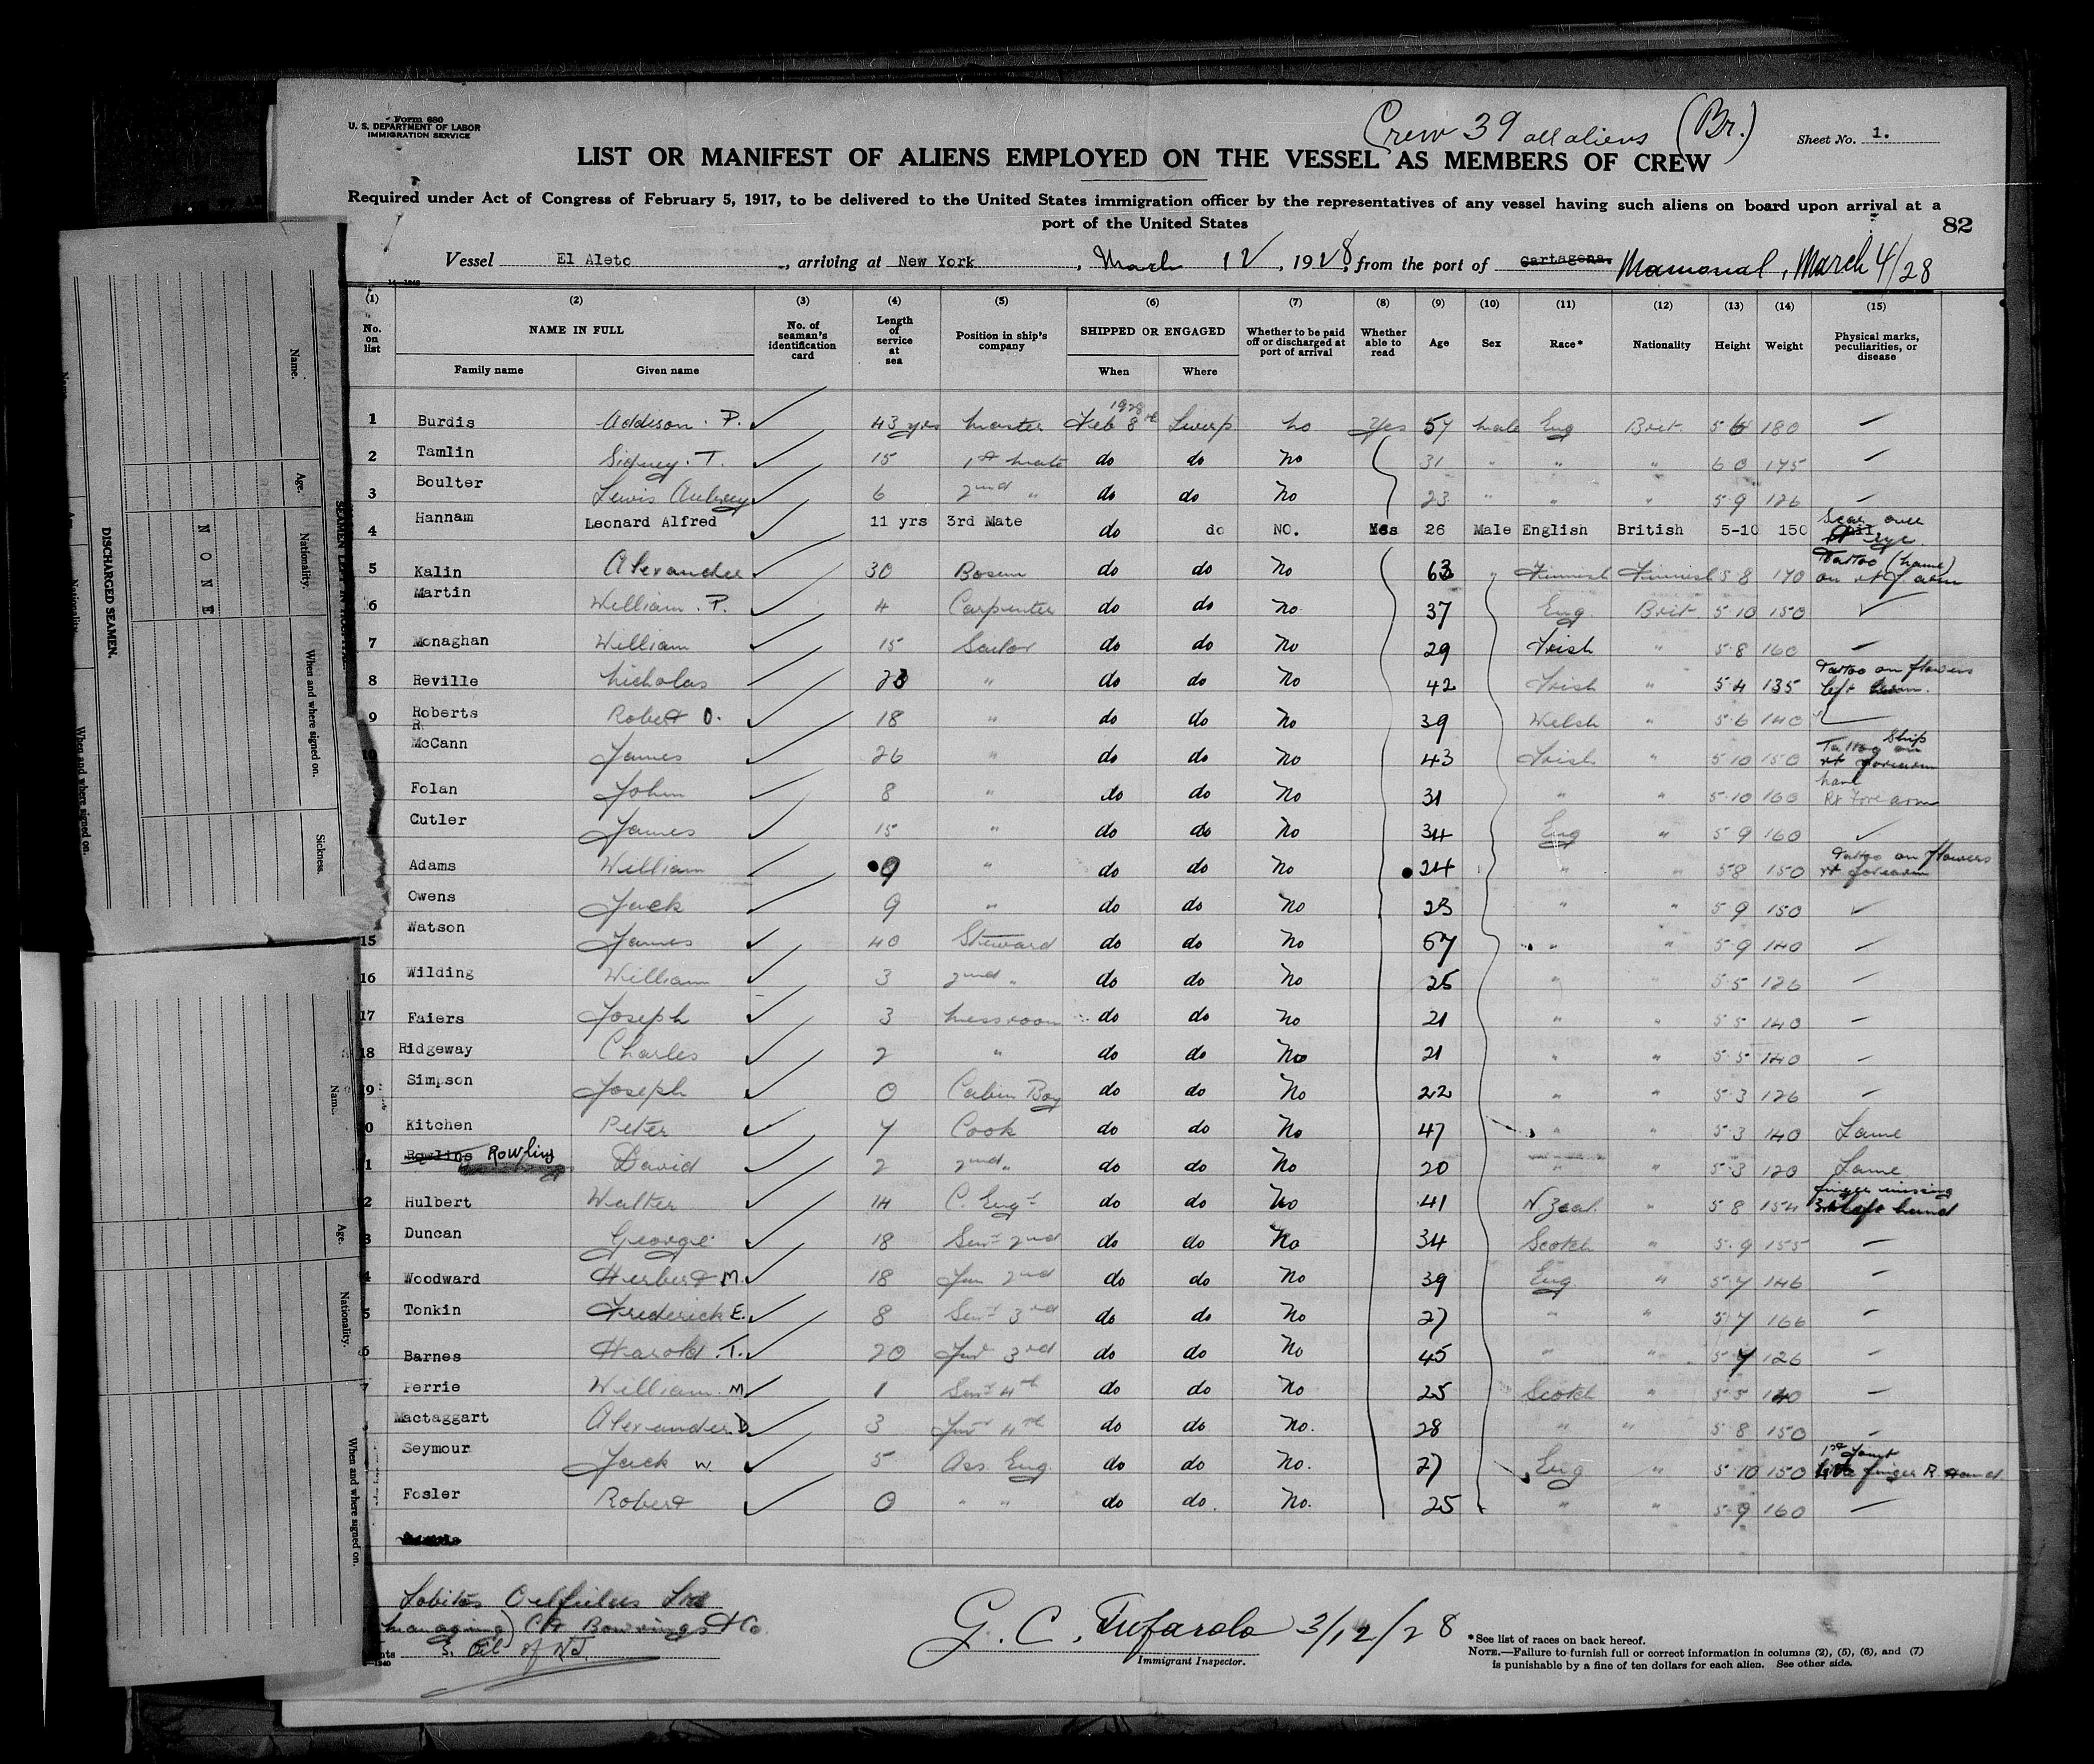 Form 680
U. S. DEPARTMENT OF LABOR
IMMIGRATION SERVICE
Crew 39 all aliens (Br.)
Sheet No. 1.
LIST OR MANIFEST OF ALIENS EMPLOYED ON THE VESSEL AS MEMBERS OF CREW
Required under Act of Congress of February 5, 1917, to be delivered to the United States immigration officer by the representatives of any vessel having such aliens on board upon arrival at a
port of the United States
82
Vessel El Aleto, arriving at New York, March 12, 1928, from the port of Cartagena. Mamonal, March 4/28
14—1240
(1) (2) (3) (4) (5) (6) (7) (8) (9) (10) (11) (12) (13) (14) (15)
No. on list NAME IN FULL No. of seaman's identification card Length of service at sea Position in ship's company SHIPPED OR ENGAGED Whether to be paid off or discharged at port of arrival Whether able to read Age Sex Race* Nationality Height Weight Physical marks, peculiarities, or disease
Family name Given name When Where
1 Burdis Addison. P. 43 yrs Master 1928 Feb 8th Liverp. No Yes 57 Male Eng Brit. 5 6 180 —
2 Tamlin Sidney. T. 15 1st Mate do do No 31 " " " 6 0 175 —
3 Boulter Lewis Aubrey 6 2nd " do do No 23 " " " 5 9 126 —
4 Hannam Leonard Alfred 11 yrs 3rd Mate do do NO. Yes 26 Male English British 5-10 150 Scar over rt eye.
5 Kalin Alexander 30 Bosun do do No 63 " Finnish Finnish 5 8 170 Tattoo (name) on rt f arm
6 Martin William. P. 4 Carpenter do do No 37 Eng Brit. 5 10 150
7 Monaghan William 15 Sailor do do No 29 Irish " 5 8 160 —
8 Reville Nicholas 28 " do do No 42 Irish " 5 4 135 Tattoo on flowers left arm.
9 Roberts R. Robert O. 18 " do do No 39 Welsh " 5 6 140
10 McCann James 26 " do do No 43 Irish " 5 10 150 Tattoo Ship on rt forearm
Folan John 8 " do do No 31 " " 5 10 160 Rt Forearm
Cutler James 15 " do do No 34 Eng " 5 9 160
Adams William 9 " do do No 24 " " 5 8 150 Tattoo on flowers rt forearm
Owens Jack 9 " do do No 23 " " 5 9 150
15 Watson James 40 Steward do do No 57 " " 5 9 140 —
16 Wilding William 3 2nd " do do No 25 " " 5 5 126 —
17 Faiers Joseph 3 Messroom do do No 21 " " 5 5 140 —
18 Ridgeway Charles 2 " do do No 21 " " 5 5 140 —
9 Simpson Joseph 0 Cabin Boy do do No 22 " " 5 3 126 —
0 Kitchen Peter 7 Cook do do No 47 " " 5 3 140 Lame
1 Rowlins Rowling David 2 2nd " do do No 20 " " 5 3 120 Lame
2 Hulbert Walter 14 C. Engr do do No 41 N Zeal. " 5 8 154 finger missing 3rd left hand
3 Duncan George 18 Senr 2nd do do No 34 Scotch " 5 9 155 —
4 Woodward Herbert M. 18 Jun 2nd do do No 39 Eng " 5 7 146 —
5 Tonkin Frederick E. 8 Senr 3rd do do No 27 " " 5 7 166 —
6 Barnes Harold. T. 20 Junr 3rd do do No 45 " " 5 7 126 —
7 Perrie William. M. 1 Senr 4th do do No 25 Scotch " 5 5 140 —
Mactaggart Alexander D. 3 Junr 4th do do No. 28 " " 5 8 150 —
Seymour Jack W. 5 Ass. Eng. do do No. 27 Eng " 5 10 150 1st Joint little finger R Hand
Fosler Robert 0 " " do do. No. 25 " " 5 9 160 —
Lobitos Oilfields Ltd
Managing) CT Bowrings & Co.
S. Oil of N.J.
G. C. Tufarolo 3/12/28
Immigrant Inspector.
*See list of races on back hereof.
NOTE.—Failure to furnish full or correct information in columns (2), (5), (6), and (7)
is punishable by a fine of ten dollars for each alien. See other side.
DISCHARGED SEAMEN.
Name.
Age.
Nationality.
When and where signed on.
Sickness.
NONE
Name.
Age.
Nationality.
When and where signed on.